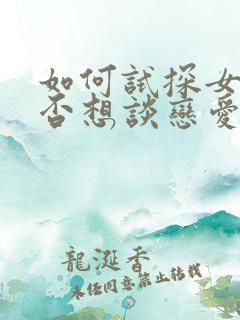 如何試探女
否想談戀愛
龍涎香
未經同意禁止轉載